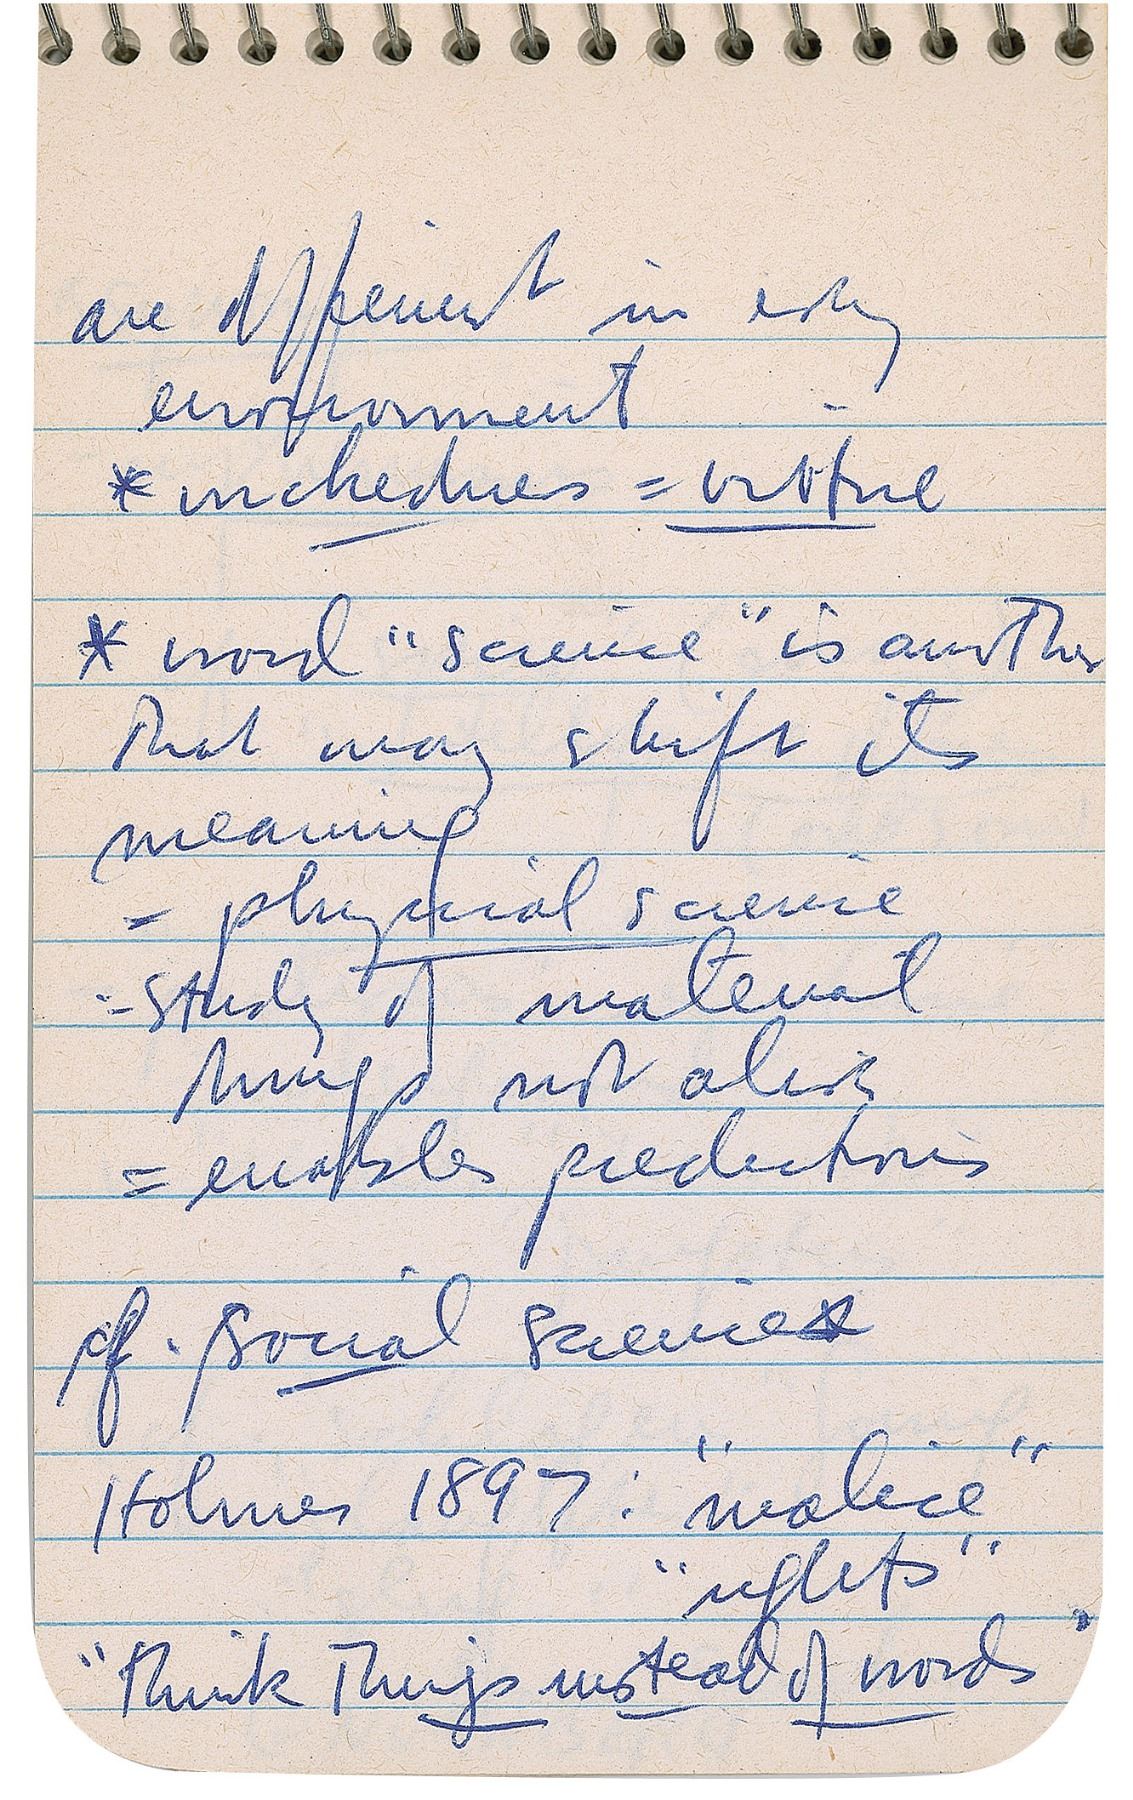 are different in every
environment
* wickedness = virtue
* word "science" is another
that may shift its
meaning
= physical science
= study of material
things not alive
= enables predictions
cf. social science
Holmes 1897: "malice"
"rights"
"Think Things instead of words"